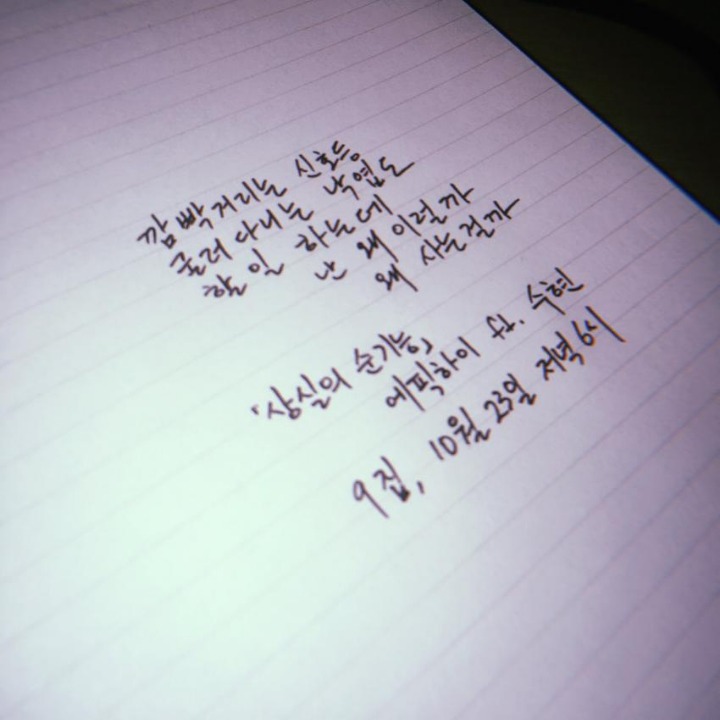 깜빡거리는 신호등
굴러다니는 낙엽도
할 일 하는데
난 왜 이럴까
왜 사는걸까
'상실의 순기능,
에픽하이 ft. 수현
9집, 10월 23일 저녁 6시